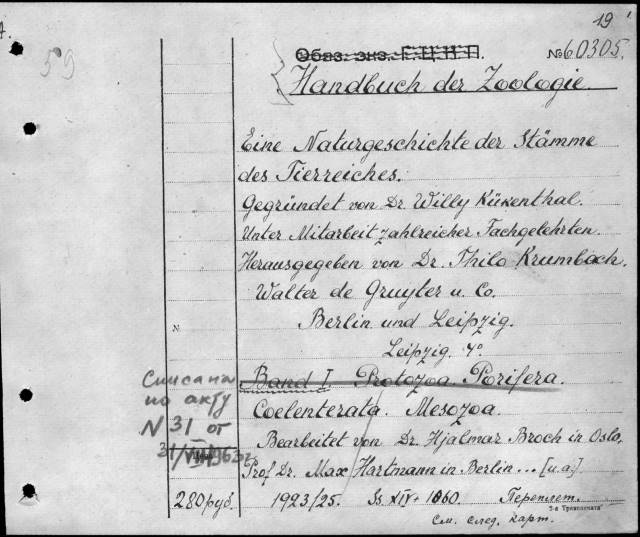 19
59
Обяз. экз. Г.Ц.Н.П.
№ 60305.
Handbuch der Zoologie.
Eine Naturgeschichte der Stämme
des Tierreiches.
Gegründet von Dr. Willy Kükenthal.
Unter Mitarbeit zahlreicher Fachgelehrten.
Herausgegeben von Dr. Thilo Krumbach.
Walter de Gruyter u. Co.
Berlin und Leipzig.
N
Leipzig. 4°.
Списана Band I. Protozoa Porifera.
по акту Coelenterata. Mesozoa.
N 31 от Bearbeitet von Dr. Hjalmar Broch in Oslo.
31/VII 1963г. Prof Dr. Max Hartmann in Berlin... [u.a.]
280 руб. 1923/25. Ss XIV + 1060. Переплет.
См. след. карт.